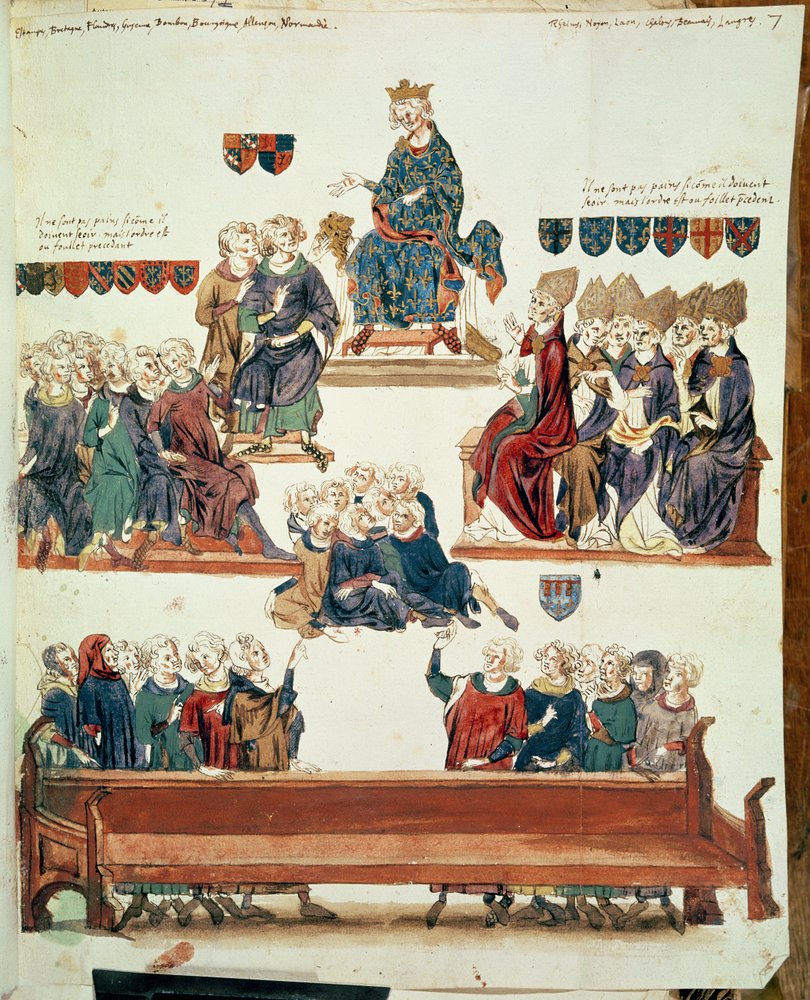 Estampes, Bretagne, Flandres, Guyenne, Bourbon, Bourgoigne, Allençon, Normandie.
Rheims, Noyon, Laon, Chalons, Beauvais, Langres. 7
Il ne sont pas pairs si cõme il
doivent seoir. mais l'ordre est
ou foullet precedant
Il ne sont pas pairs si cõme il doivent
seoir. mais l'ordre est ou foillet p̃cedent.